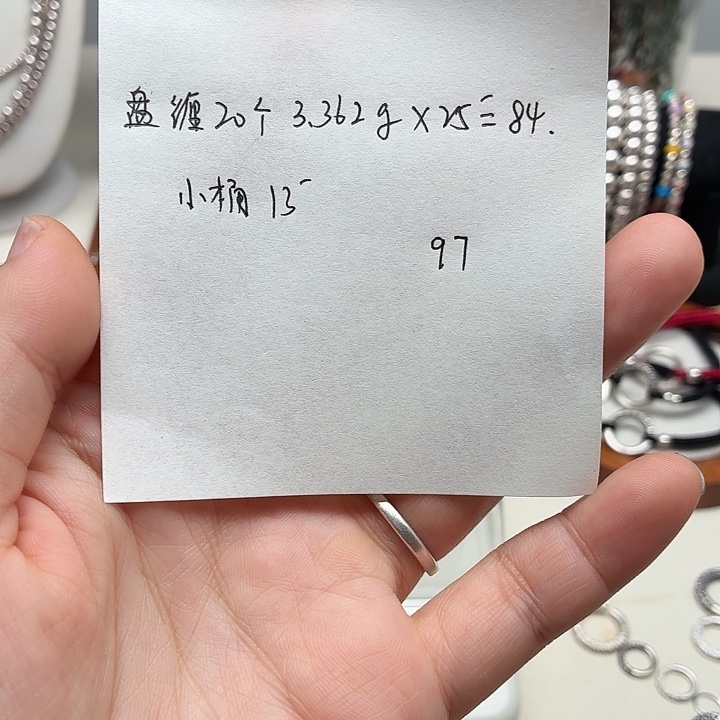 盘缠20个 3.362g×25=84.
小桶 13
97